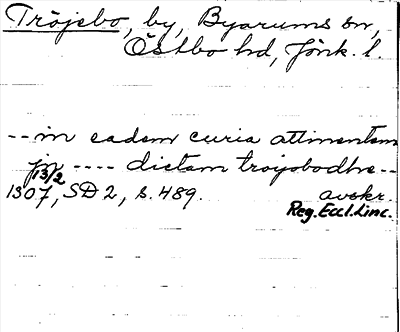 Tröjebo, by, Byarums sn,
Östbo hd, Jönk. l.
-- in eadem curia attinentem
jn ---- dictam troyobodhe--
13/2
1307, SD 2, s. 489. avskr.
Reg. Eccl. Linc.